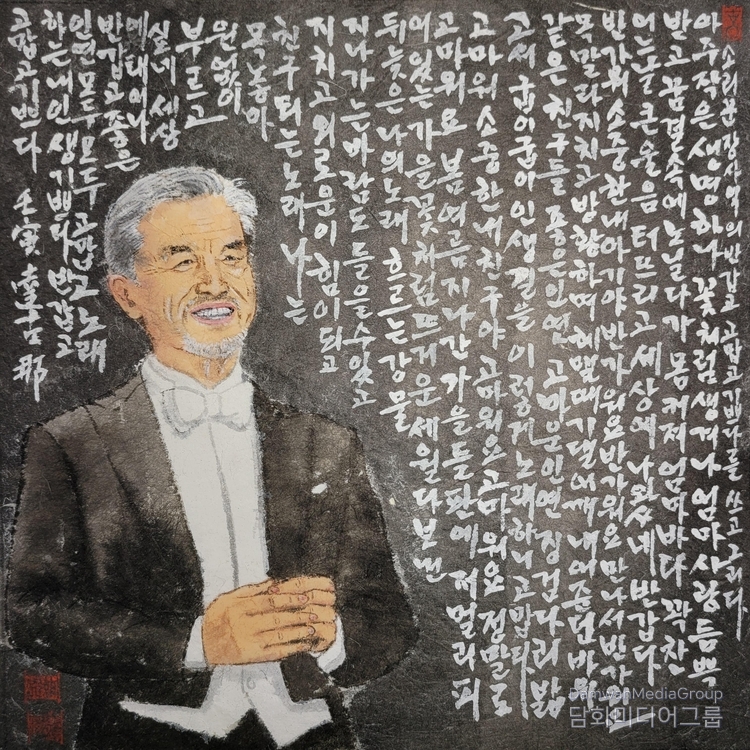 소리꾼 장사익의 반갑고 고맙고 기쁘다를 쓰고 그리다
아주 작은 생명 하나 꽃처럼 생겨나 엄마 사랑 듬뿍
받고 잠결 속에 노닐다가 몸 커져 엄마 바다 꽉 찬
어느날 큰 울음 터뜨리고 세상에 나왔네 반갑다
반가워 소중한 내 아기야 반가워요 반가워요 만나서 반가
목말라 지치고 방황하며 헤맬 때 기댈 어깨 내어 준 던 바위
같은 친구들 좋은 인연 고마운 인연 징검다리 밟
고서 굽이굽이 인생길을 이렇게 노래하니 고맙다
고마워 소중한 내 친구야 고마워요 고마워요 정말로
고마워요 봄 여름 지나간 가을 들판에 저 멀리 피
어있는 가을꽃처럼 뜨거운 세월 다 보낸
뒤늦은 나의 노래 흐르는 강물
지나가는 바람도 들을 수 있고
지치고 외로운 이 힘이 되고
친구 되는 노래 나는
목놓아
원없이
부르고
실네 세상
에 태어나
반갑고 좋은
인연 모두모두 고맙고 노래
하는 내 인생 기쁘다 반갑고
고맙고 기쁘다 壬寅
DamwhaMediaGroup
담화미디어그룹